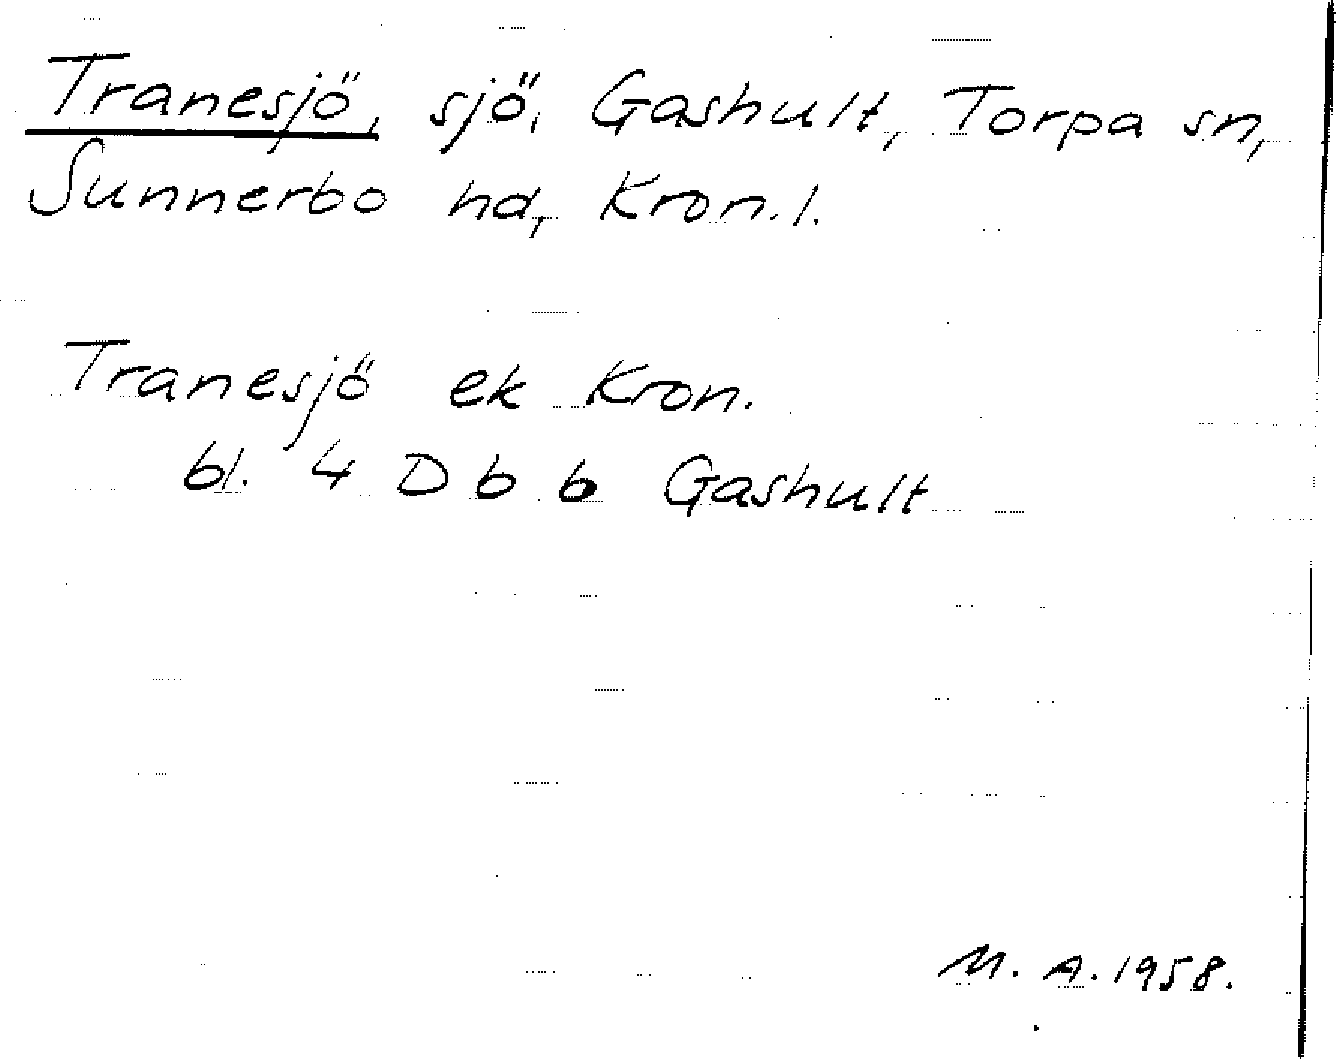 Tranesjö, sjö, Gashult, Torpa sn,
Sunnerbo hd, Kron.l.
Tranesjö ek Kron.
bl. 4 D b b Gashult
M. A. 1958.